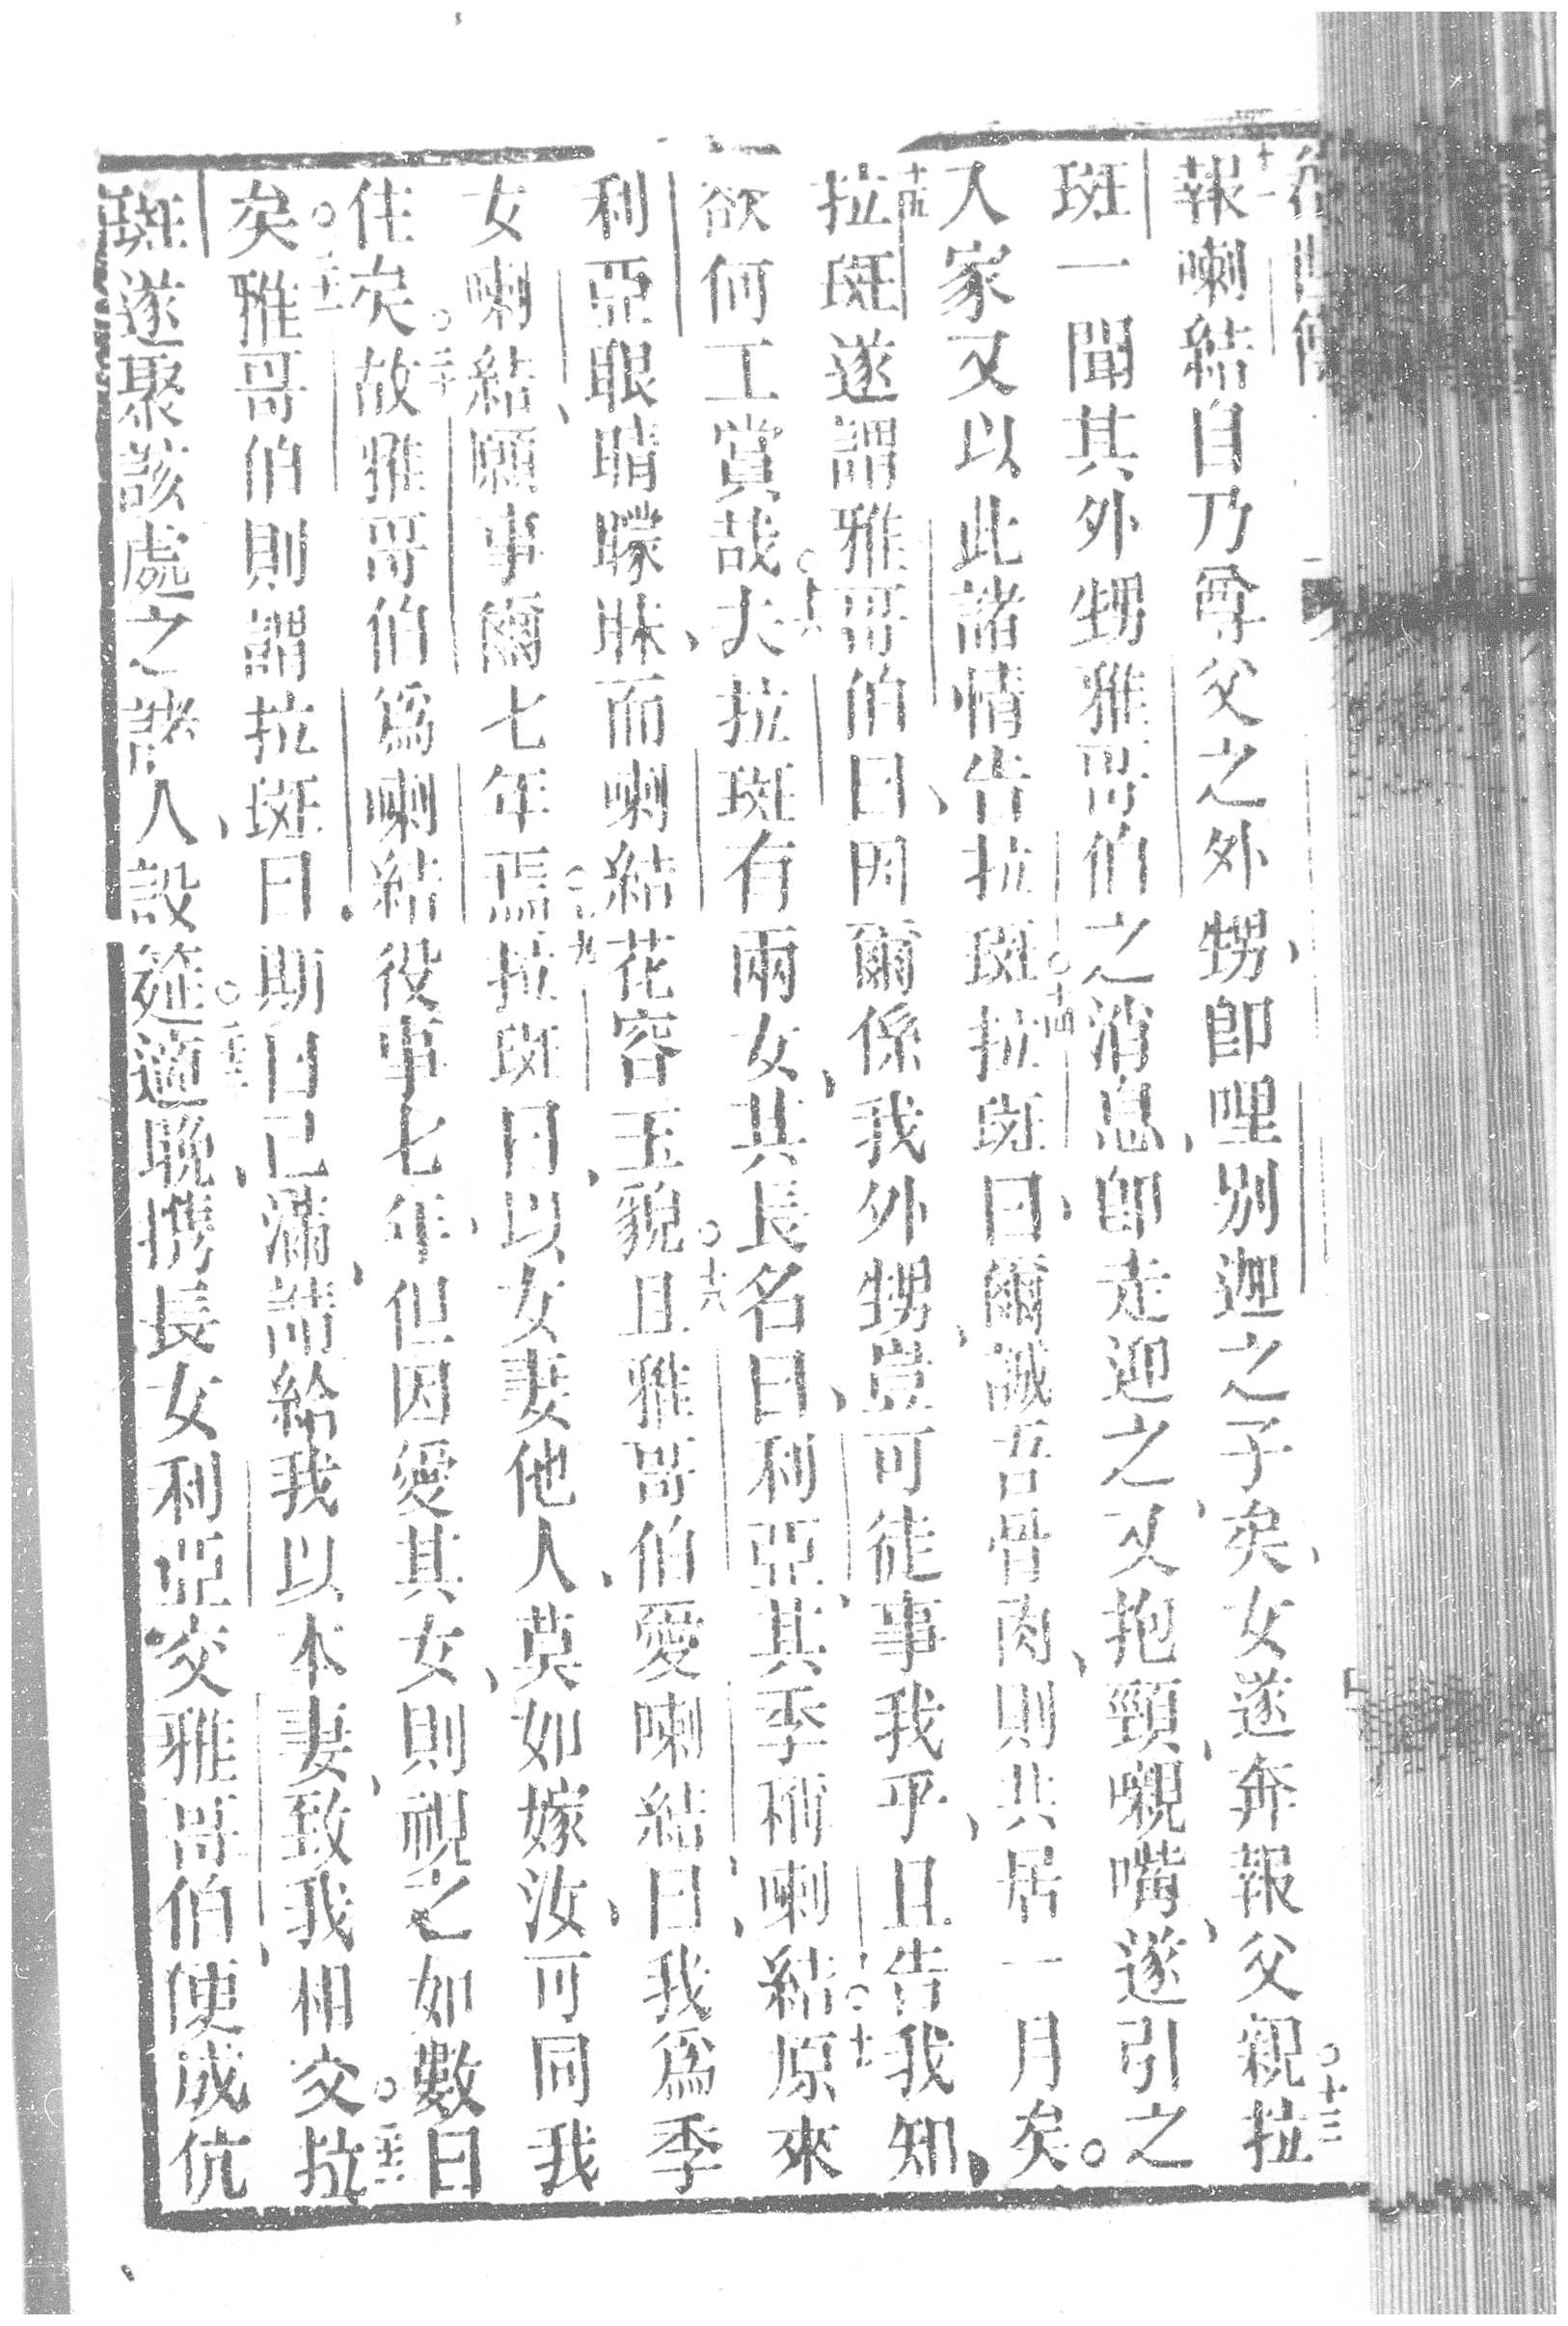 報喇結自乃尊父之外甥、即哩別迦之子矣、女遂奔報父親○十三拉
斑一聞其外甥雅哥伯之消息、即走迎之、又抱頸、嚫嘴、遂引之
人家又以此諸情告拉斑○十四拉斑曰、爾誠吾骨肉、則共居一月矣。
十五拉斑遂謂雅哥伯曰、因爾係我外甥、豈可徒事我乎、且告我知、
欲何工賞哉○十六夫拉斑有兩女、其長名曰、利亞、其季稱喇結○十七原來
利亞眼睛矇眛、而喇結花容玉貌○十八且雅哥伯愛喇結、曰、我為季
女喇結、願事爾七年焉○十九拉斑曰、以女妻他人、莫如嫁汝、可同我
住矣○二十故雅哥伯為喇結役事七年、但因愛其女、則視之如數日
矣○二十一雅哥伯則謂拉斑曰期日已滿、請給我以本妻、致我相交○二十二拉
斑遂聚該處之諸人、設筵○二十三適晚、携長女利亞交雅哥伯、使成伉